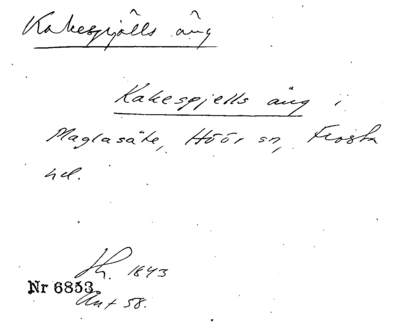 Kakespjälls äng
Kakespjells äng i
Maglasäte, Höör sn, Frosta
hd.
Sk. 1843
Nr 6853
Ant 58.